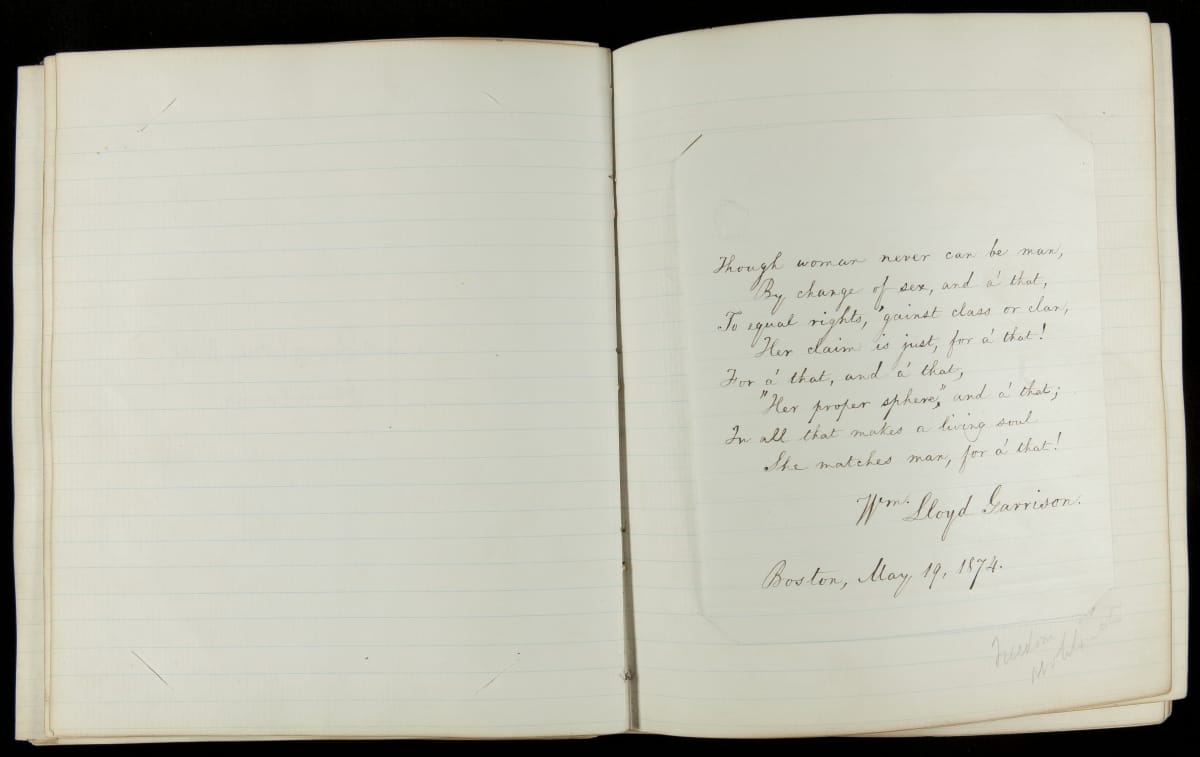 Though woman never can be man,
By change of sex, and a' that,
To equal rights, 'gainst class or clan,
Her claim is just, for a' that!
For a' that, and a' that,
"Her proper sphere," and a' that;
In all that makes a living soul
She matches man, for a' that!
Wm. Lloyd Garrison.
Boston, May 19, 1874.